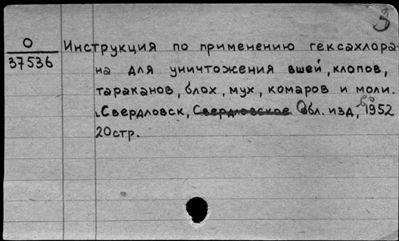 З
О
37536
Инструкция по применению гексахлора-
на для уничтожения вшей, клопов,
тараканов, блох, мух, комаров и моли.
Свердловск, Свердловское Обл. изд, 1952
20стр.